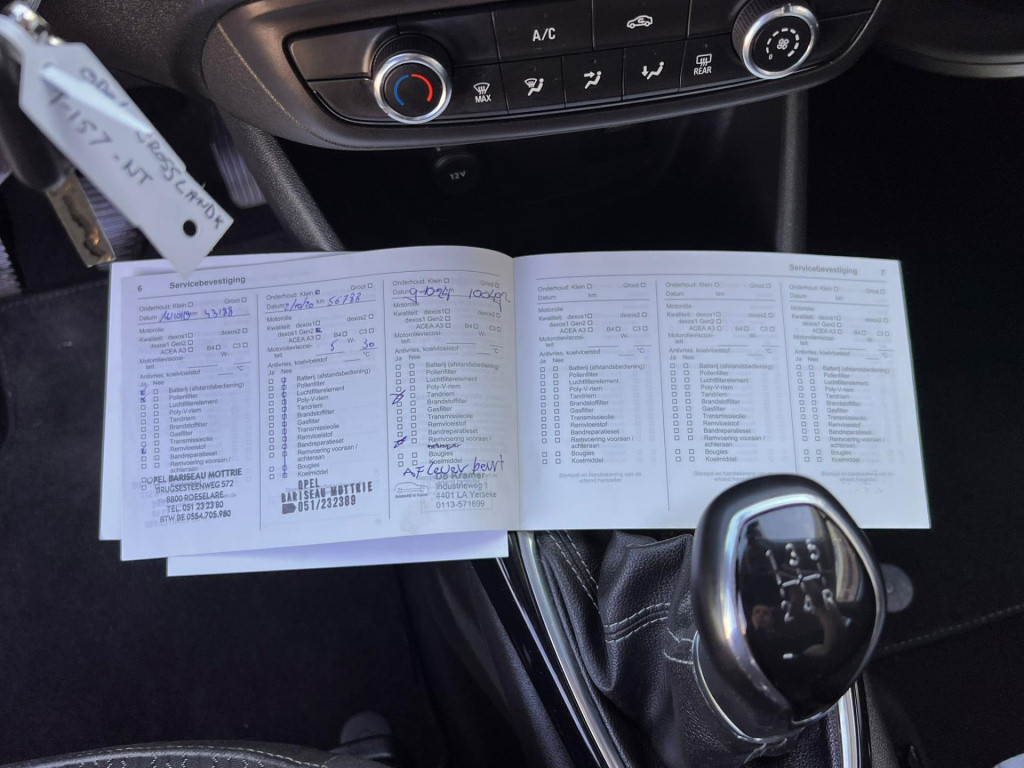 A/C
MAX
REAR
12V
OPEL CROSSLANDX
T-157-NT
6 Servicebevestiging
Onderhoud: Klein Groot
Datum km 43188
Motorolie
Kwaliteit: dexos1 dexos2
dexos1 Gen2
ACEA A3 B4 C3
Motorolieviscosi- W-
teit
Antivries, koelvloeistof °C
Ja Nee
Batterij (afstandsbediening)
Pollenfilter
Luchtfilterelement
Poly-V-riem
Tandriem
Brandstoffilter
Gasfilter
Transmissieolie
Remvloeistof
Bandreparatieset
Remvoering vooraan /
achteraan
Bougies
Koelmiddel
OPEL BARISEAU MOTTRIE
BRUGSESTEENWEG 572
8800 ROESELARE
TEL. 051 23 23 80
BTW BE 0554.705.980
Onderhoud: Klein Groot
Datum km 56788
Motorolie
Kwaliteit: dexos1 dexos2
dexos1 Gen2
ACEA A3 B4 C3
Motorolieviscosi- 5 W- 30
teit
Antivries, koelvloeistof °C
Ja Nee
Batterij (afstandsbediening)
Pollenfilter
Luchtfilterelement
Poly-V-riem
Tandriem
Brandstoffilter
Gasfilter
Transmissieolie
Remvloeistof
Bandreparatieset
Remvoering vooraan /
achteraan
Bougies
Koelmiddel
OPEL
BARISEAU MOTTRIE
051/232389
Onderhoud: Klein Groot
Datum
Motorolie
Kwaliteit: dexos1 dexos2
dexos1 Gen2
ACEA A3 B4 C3
Motorolieviscosi- W-
teit
Antivries, koelvloeistof °C
Ja Nee
Batterij (afstandsbediening)
Pollenfilter
Luchtfilterelement
Poly-V-riem
Tandriem
Brandstoffilter
Gasfilter
Transmissieolie
Remvloeistof
Bandreparatieset
Remvoering vooraan /
Bougies
Koelmiddel
AFlever beurt
De Kramer
Industrieweg
4401 LA Yerseke
0113-571699
Servicebevestiging 7
Onderhoud: Klein Groot
Datum km
Motorolie
Kwaliteit: dexos1 dexos2
dexos1 Gen2
ACEA A3 B4 C3
Motorolieviscosi- W-
teit
Antivries, koelvloeistof °C
Ja Nee
Batterij (afstandsbediening)
Pollenfilter
Luchtfilterelement
Poly-V-riem
Tandriem
Brandstoffilter
Gasfilter
Transmissieolie
Remvloeistof
Bandreparatieset
Remvoering vooraan /
achteraan
Bougies
Koelmiddel
Onderhoud: Klein Groot
Datum km
Motorolie
Kwaliteit: dexos1 dexos2
dexos1 Gen2
ACEA A3 B4 C3
Motorolieviscosi- W-
teit
Antivries, koelvloeistof °C
Ja Nee
Batterij (afstandsbediening)
Pollenfilter
Luchtfilterelement
Poly-V-riem
Tandriem
Brandstoffilter
Gasfilter
Transmissieolie
Remvloeistof
Bandreparatieset
Remvoering vooraan /
achteraan
Bougies
Koelmiddel
Onderhoud: Klein Groot
Datum km
Motorolie
Kwaliteit: dexos1 dexos2
dexos1 Gen2
ACEA A3 B4 C3
Motorolieviscosi- W-
teit
Antivries, koelvloeistof °C
Ja Nee
Batterij (afstandsbediening)
Pollenfilter
Luchtfilterelement
Poly-V-riem
Tandriem
Brandstoffilter
Gasfilter
Transmissieolie
Remvloeistof
Bandreparatieset
Remvoering vooraan /
achteraan
Bougies
Koelmiddel
1 3 5
2 4 R